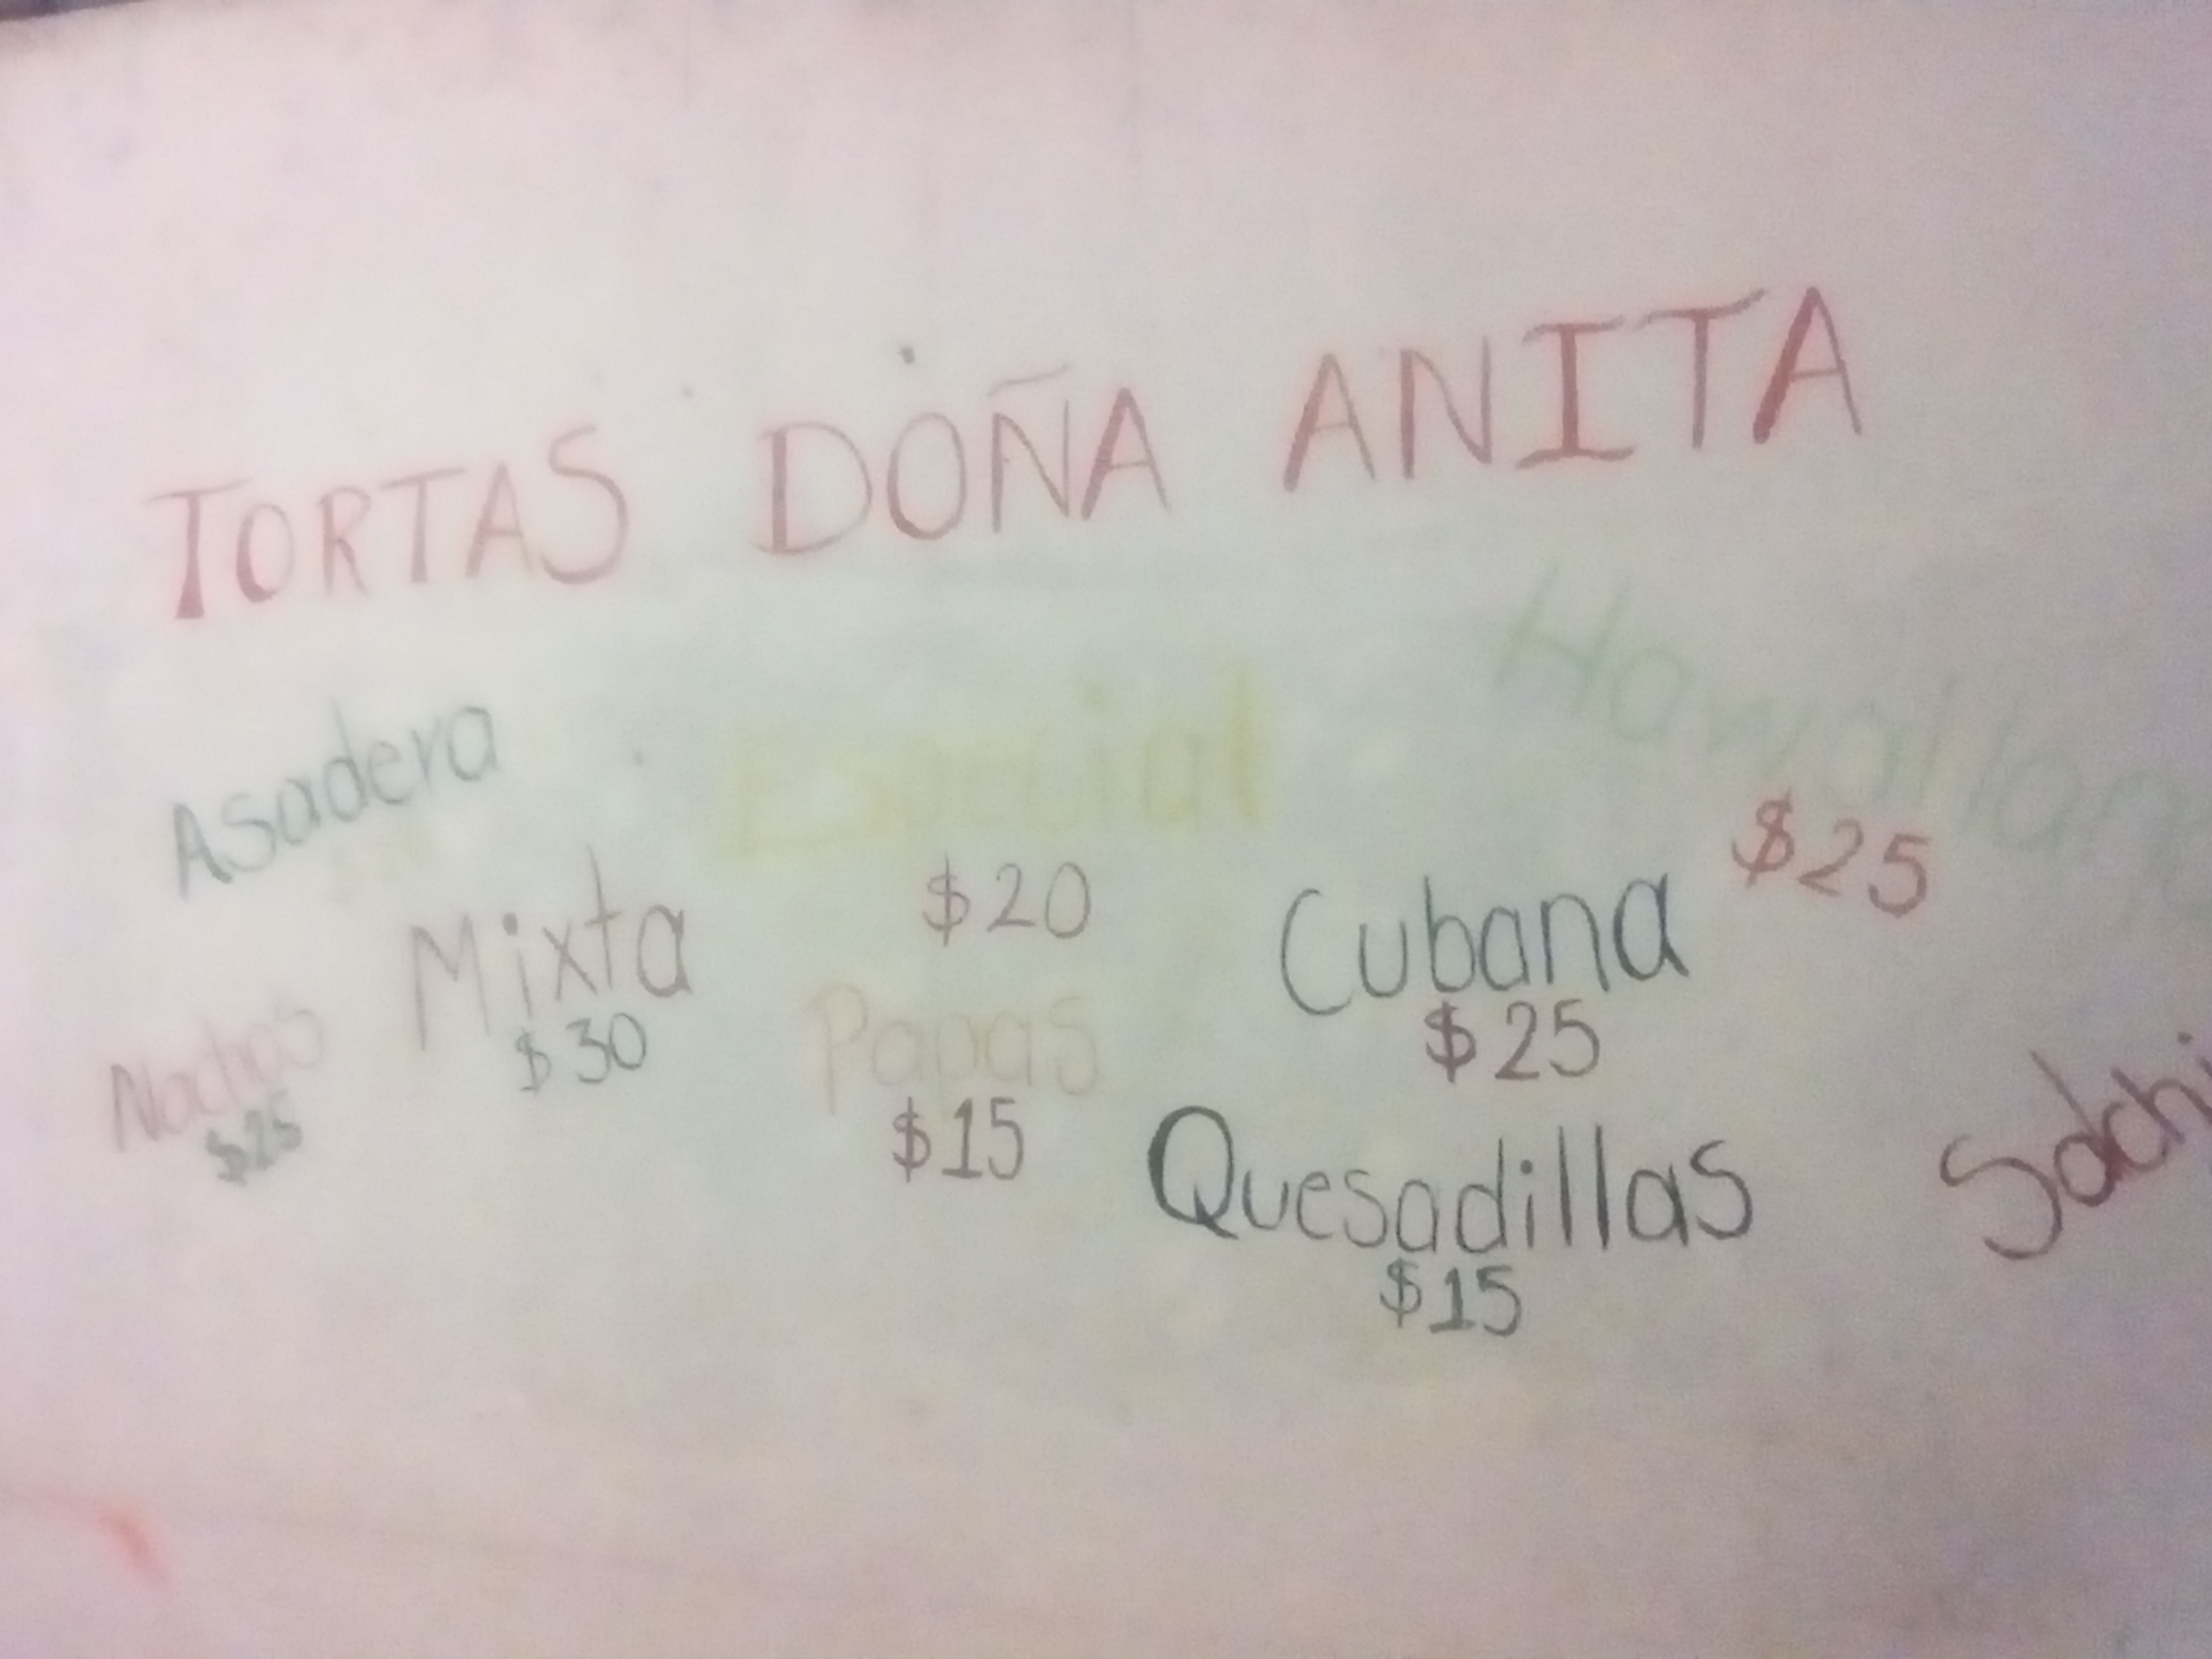 TORTAS DOÑA ANITA
Asadera
Especial
$20
Hawaiiana
$25
Mixta
$30
Cubana
$25
Nachos
$25
Papas
$15
Quesadillas
$15
Salchi